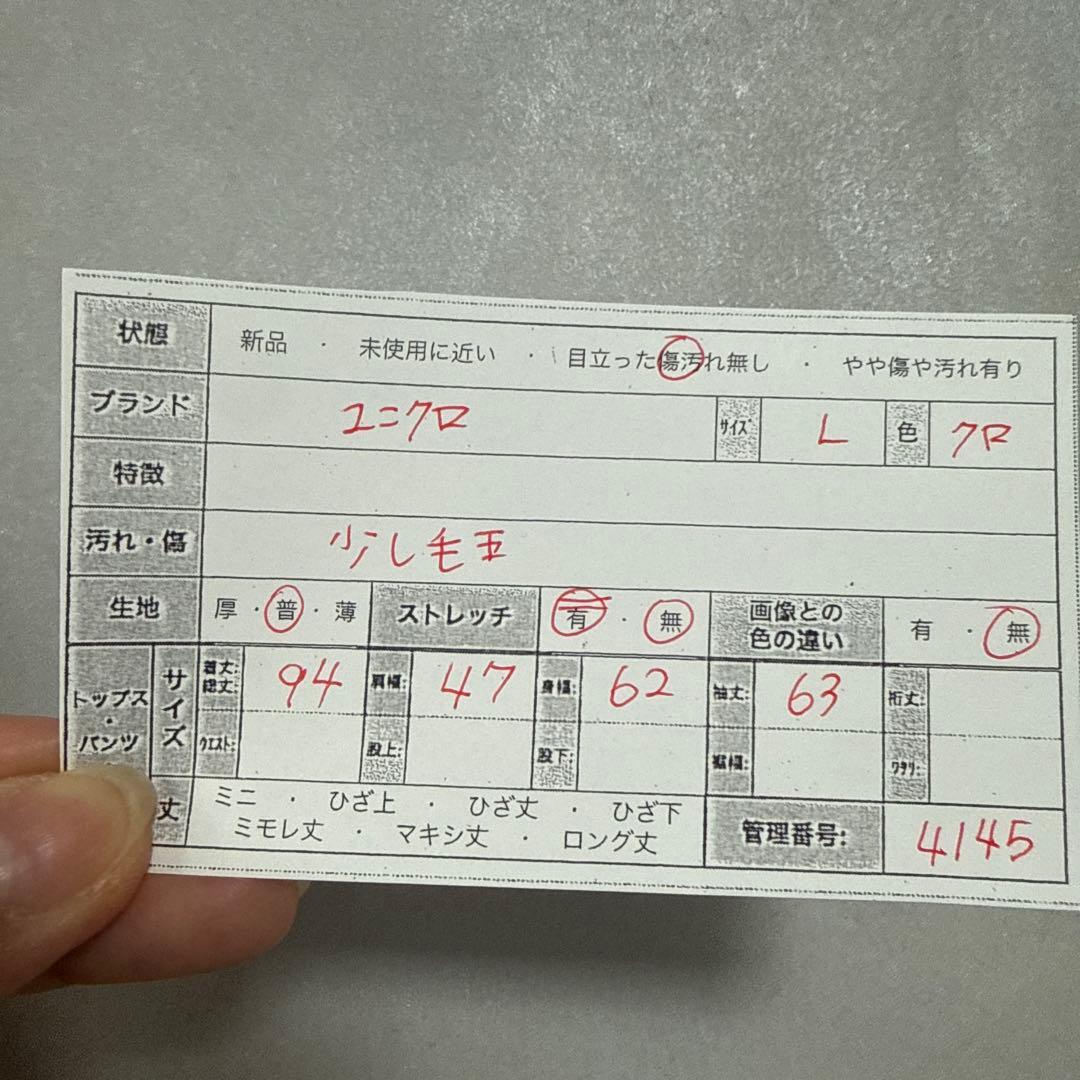 状態 新品 ・ 未使用に近い ・ 目立った傷汚れ無し ・ やや傷や汚れ有り
ブランド ユニクロ サイズ L 色 クロ
特徴
汚れ・傷 少し毛玉
生地 厚・普・薄 ストレッチ 有 ・ 無 画像との色の違い 有 ・ 無
トップス・パンツ サイズ 着丈:総丈: 94 肩幅: 47 身幅: 62 袖丈: 63 裄丈:
ウエスト: 股上: 股下: 裾幅: ワタリ:
丈 ミニ ・ ひざ上 ・ ひざ丈 ・ ひざ下
ミモレ丈 ・ マキシ丈 ・ ロング丈 管理番号: 4145